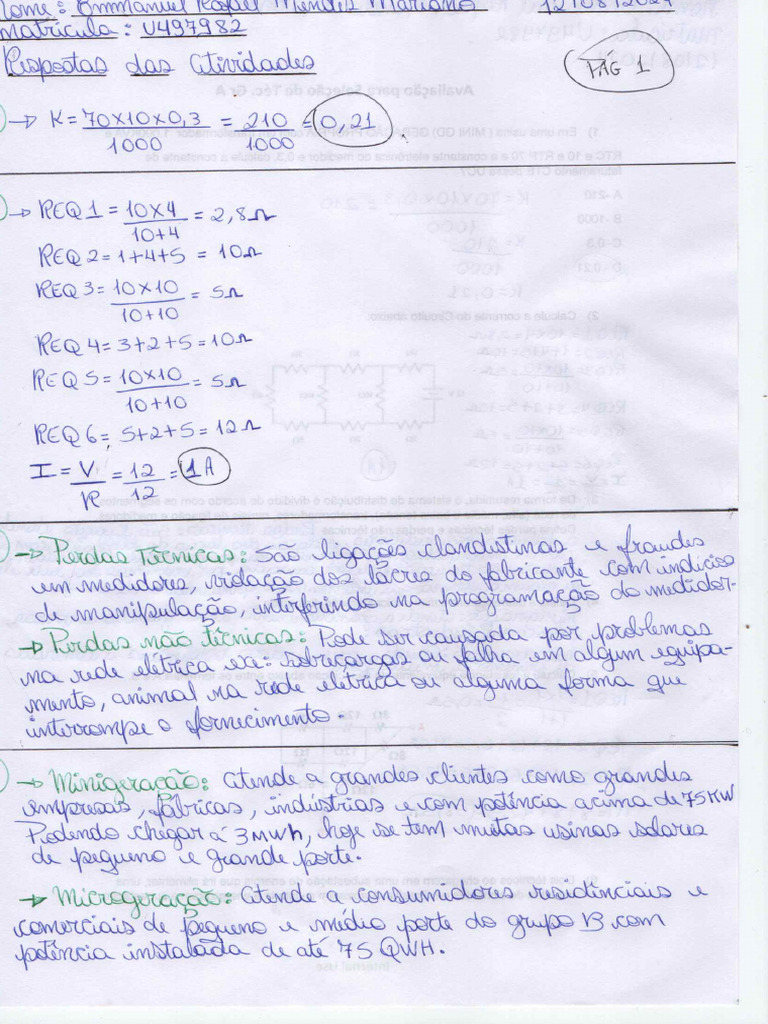 Nome: Emmanuel Rafael Mendes Mariano 12/08/2024
Matrícula: U497982
Respostas das Atividades
PÁG 1
→ K = 70x10x0,3 = 210 = 0,21
1000 1000
→ REQ 1 = 10x4 = 2,8Ω
10+4
REQ 2 = 1+4+5 = 10Ω
REQ 3 = 10x10 = 5Ω
10+10
REQ 4 = 3+2+5 = 10Ω
REQ 5 = 10x10 = 5Ω
10+10
REQ 6 = 5+2+5 = 12Ω
I = V = 12 = 1A
R 12
→ Perdas Técnicas: São ligações clandistinas e fraudes
em medidores, violação dos lacres do fabricante com indícios
de manipulação, interferindo na programação do medidor.
→ Perdas não técnicas: Pode ser causada por problemas
na rede elétrica ex: sobrecargas ou falha em algum equipa-
mento, animal na rede elétrica ou alguma forma que
interrompe o fornecimento.
→ Minigeração: Atende a grandes clientes como grandes
empresas, fábricas, indústrias e com potência acima de 75KW
Podendo chegar á 3MWh, hoje se tem muitas usinas solares
de pequeno e grande porte.
→ Microgeração: Atende a consumidores residênciais e
comerciais de pequeno e médio porte do grupo B com
potência instalada de até 75 QWH.